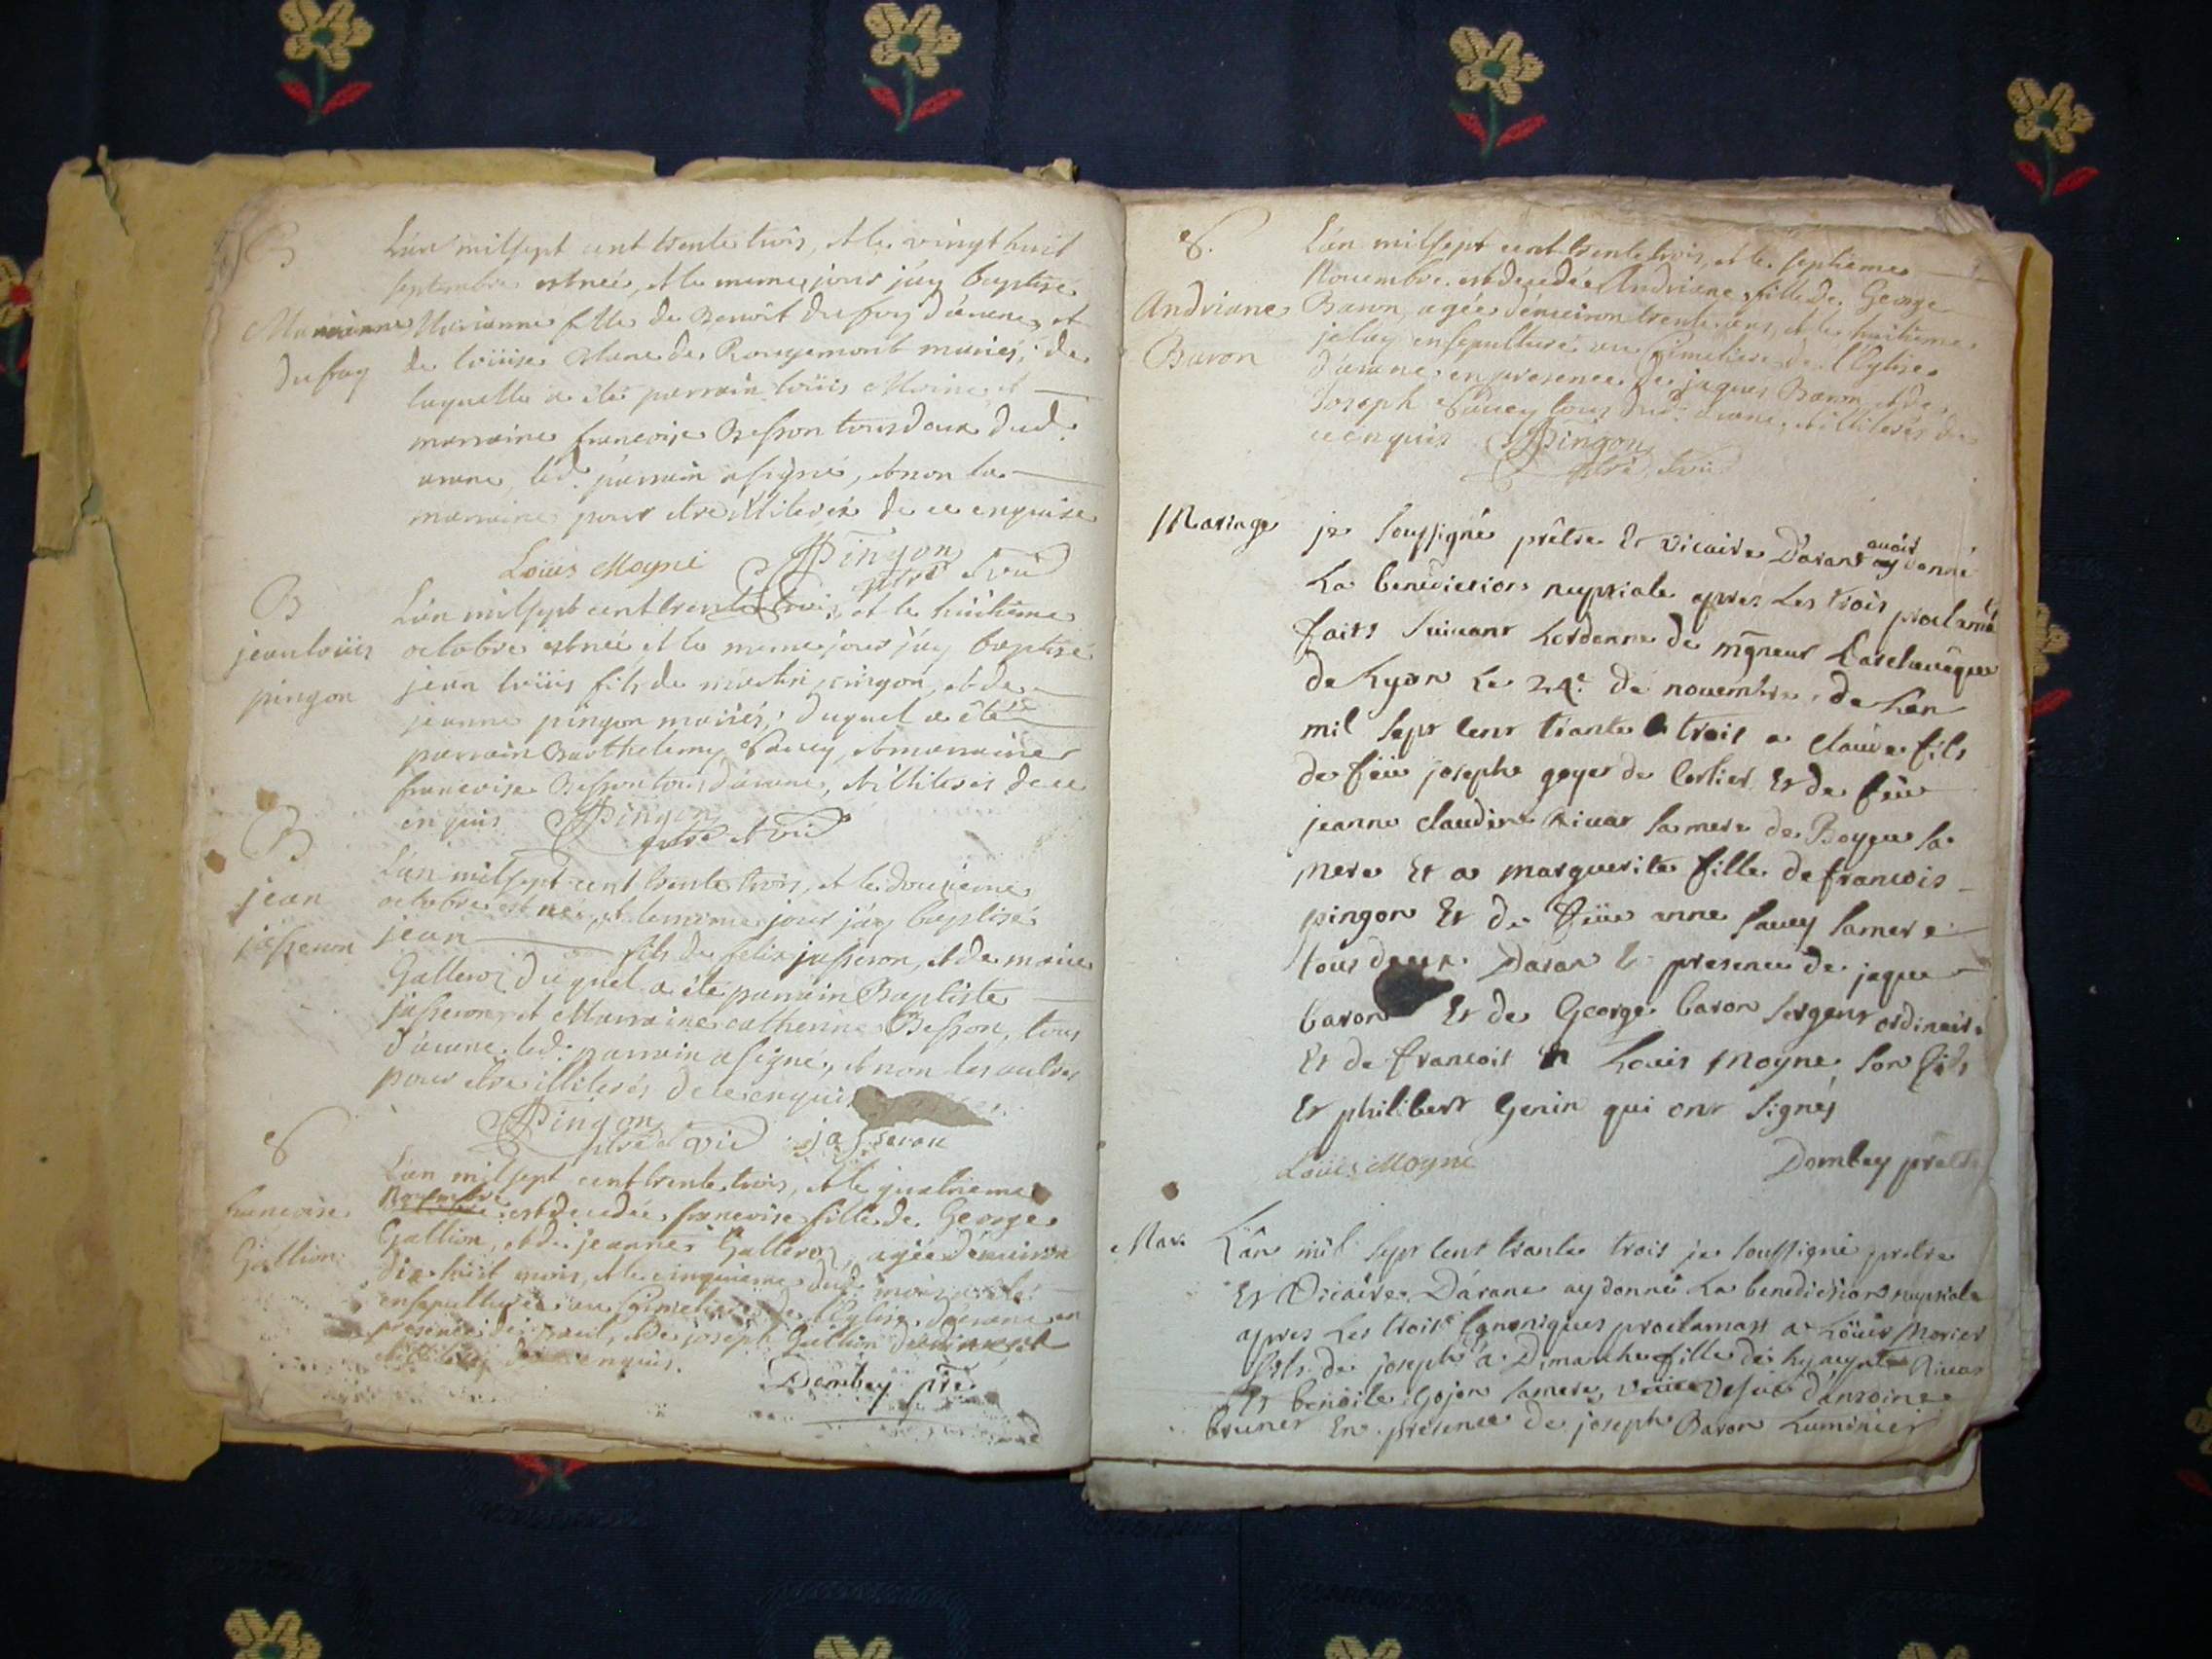 B
L'an mil sept cent trente trois, et le vingt huit
septembre est née, et le meme jour j'ay baptisé
Marianne Marianne fille de Benoit Dufray d'arane, et
Dufray de loüise de Rougemont mariés, de
laquelle a été parrain loüis Moine et
marraine francoise Besson tous deux dud.
arane, led. parrain a signé, et non la
marraine pour etre illiterée de ce enquise
Loüis Moyne Pingon
ptre et vic
B
L'an mil sept cent trente trois, et le huitieme
jean loüis octobre est né et le meme jour j'ay baptisé
pingon jean loüis fils de martin pingon, et de
jeanne pingon mariés, duquel a été
parrain Barthelemy Savey, et marraine
francoise Besson tous d'arane, et illiterés de ce
enquis Pingon
ptre et vic
B
L'an mil sept cent trente trois, et le douzieme
jean octobre est né, et le meme jour j'ay baptisé
jasseron jean fils de felix jasseron, et de marie
Galleroz duquel a été parrain Baptiste
jasseron, et Marraine catherine Besson, tous
d'arane, led. parrain a signé, et non les autres
pour etre illiterés de ce enquis
Pingon
ptre et vic jasseron
S
L'an mil sept cent trente trois, et le quatrieme
francoise Novembre est decedée francoise fille de George
Gallion Gallion, et de jeanne Galleroz, agée d'environ
dix huit mois, et le cinquieme dud. mois je l'ai
ensepulturée au Cimetiere de l'Eglise d'arane en
presence de et de joseph Gallion
enquis.
Dombey ptre
S.
L'an mil sept cent trente trois, et le septieme
Novembre est decedée Andriane fille de George
Andriane Baron, agée d'environ trente ans, et le huitieme
Baron je l'ay ensepulturé au Cimetiere de l'Eglise
d'arane en presence de jaques Baron et de
Joseph Savey tous dud. arane, et illiterés de
ce enquis Pingon
ptre et vic
Mariage je soussigné prêtre Et vicaire Darane avoir donné
La benediction nuptiale apres Les trois proclama
faits suivant Lordonne de mgneur Larchevêque
de Lyon Le 24e. de novembre de Lan
mil sept cent trante trois a claude fils
de feüe joseph goyer de Corlier Et de feüe
jeanne claudine Rivat sa mere de Boyeu sa
mere Et a marguerite fille de francois
pingon Et de feüe anne savey sa mere
tous deux Daran En presence de jaque
baron Et de George baron sergent ordinaire
Et de francois Louis Moyne son fils
Et philibert Genin qui ont signés
Loüis Moyne Dombey prêtre
Mar. L'ân mil sept cent trante trois je soussigné pretre
Et Vicaire Dárane ay donné La benediction nuptiale
apres Les trois Canoniques proclamats a Loüis Morier
fils de joseph a Dimanche fille de hyacynte Rivat
Et benoite Gojon sa mere, vefve d'antoine
bruner En presence de joseph Baron Luminier